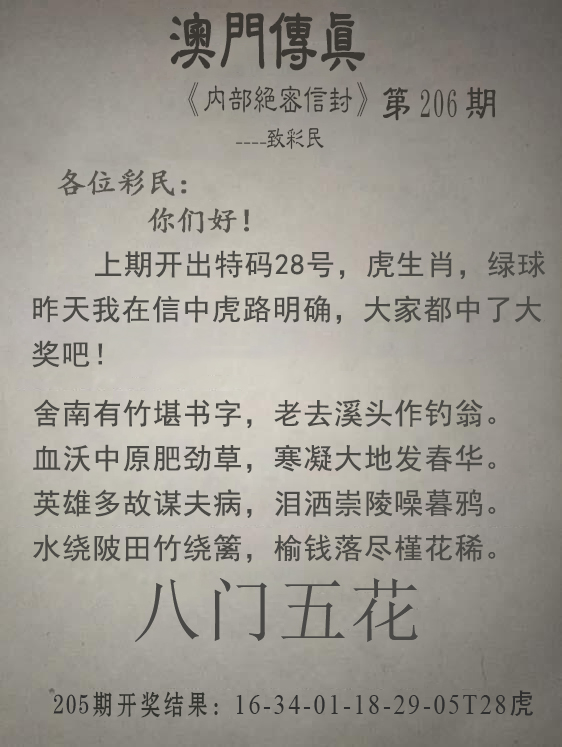 澳門傳真
《内部絕密信封》第 206 期
----致彩民
各位彩民：
你们好！
上期开出特码28号，虎生肖，绿球
昨天我在信中虎路明确，大家都中了大
奖吧！
舍南有竹堪书字，老去溪头作钓翁。
血沃中原肥劲草，寒凝大地发春华。
英雄多故谋夫病，泪洒崇陵噪暮鸦。
水绕陂田竹绕篱，榆钱落尽槿花稀。
八门五花
205期开奖结果：16-34-01-18-29-05T28虎